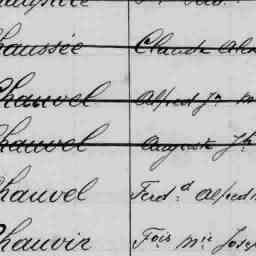 haussée Claude
Chauvel Alfred Jn
Chauvel Auguste Jh
Chauvel Ferd.d Alfred
Chauvin Fois Mie Jose